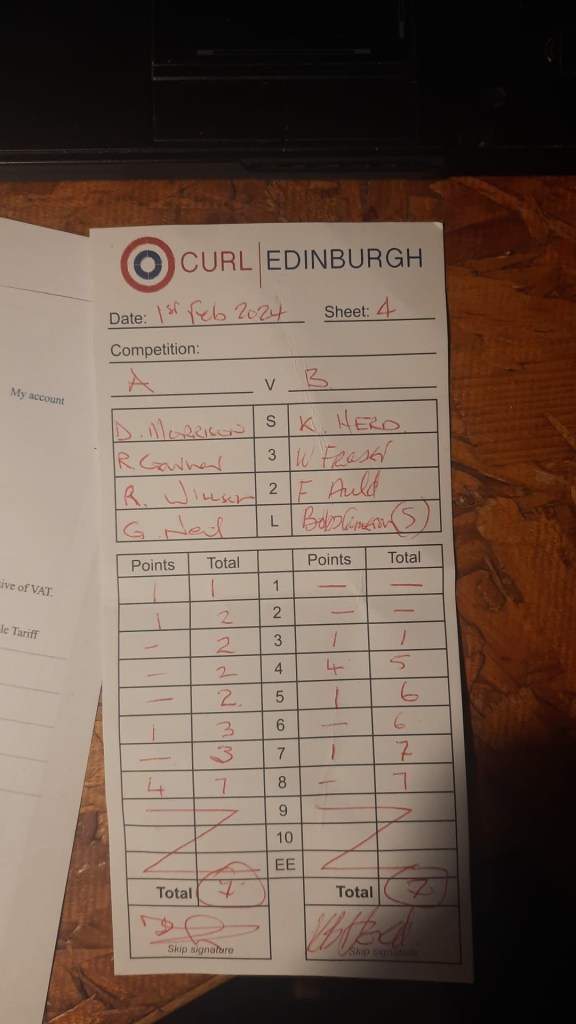 CURL EDINBURGH
Date: 1st Feb 2024 Sheet: 4
Competition:
A V B
My account
D. MORRISON S K. HERD
R. 3 W FRASER
R. 2 F Auld
G. Neil L Bobs Cameron (S)
Points Total Points Total
1 1 1 — —
1 2 2 — —
- 2 3 1 1
- 2 4 4 5
— 2. 5 1 6
1 3 6 — 6
— 3 7 1 7
4 7 8 - 7
9
10
EE
Total 7 Total 7
Skip signature Skip signature
ive of VAT.
le Tariff